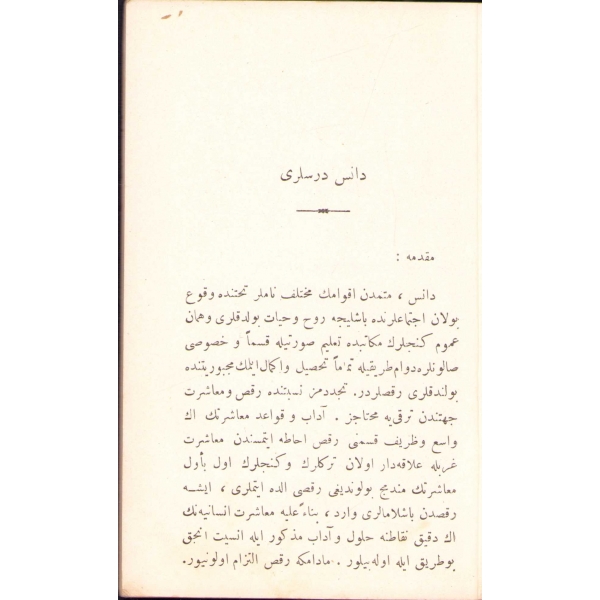 دانس درسلری
مقدمه :
دانس ، متمدن اقوامك مختلف ناملر تحتنده وقوع
بولان اجتماعلرنده باشليجه روح وحيات بولدقلری وهمان
عموم كنجلرك مكاتبده تعليم صورتيله قسماً و خصوصی
صالونلره دوام طريقيله تماماً تحصيل واكمال ايتمك مجبوريتنده
بولندقلری رقصلردر. تجددمز نسبتنده رقص ومعاشرت
جهتندن ترقی‌يه محتاجز . آداب و قواعد معاشرتك اك
واسع وظريف قسمنی رقص احاطه ايتمسندن معاشرت
غربله علاقه‌دار اولان تركلرك وكنجلرك اول بأول
معاشرتك مندمج بولونديغی رقصی الده ايتملری ، ايشه
رقصدن باشلامالری وارد ، بناءً عليه معاشرت انسانيه‌نك
اك دقيق نقاطنه حلول و آداب مذكور ايله انسيت انجق
بوطريق ايله اوله‌بيلور . مادامكه رقص التزام اولونيور.